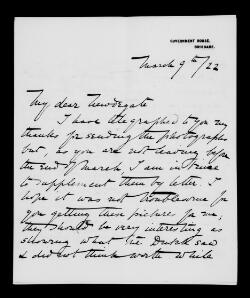 GOVERNMENT HOUSE,
BRISBANE.
March 9th/22
My dear Newdegate
I have telegraphed to you my
thanks for sending the photographs
but, as you are not leaving before
the end of March, I am
to supplement them by letter. I
hope it was not troublesome for
you getting these pictures for me;
they should be very interesting as
showing what the Dutch saw
& did not think worth while